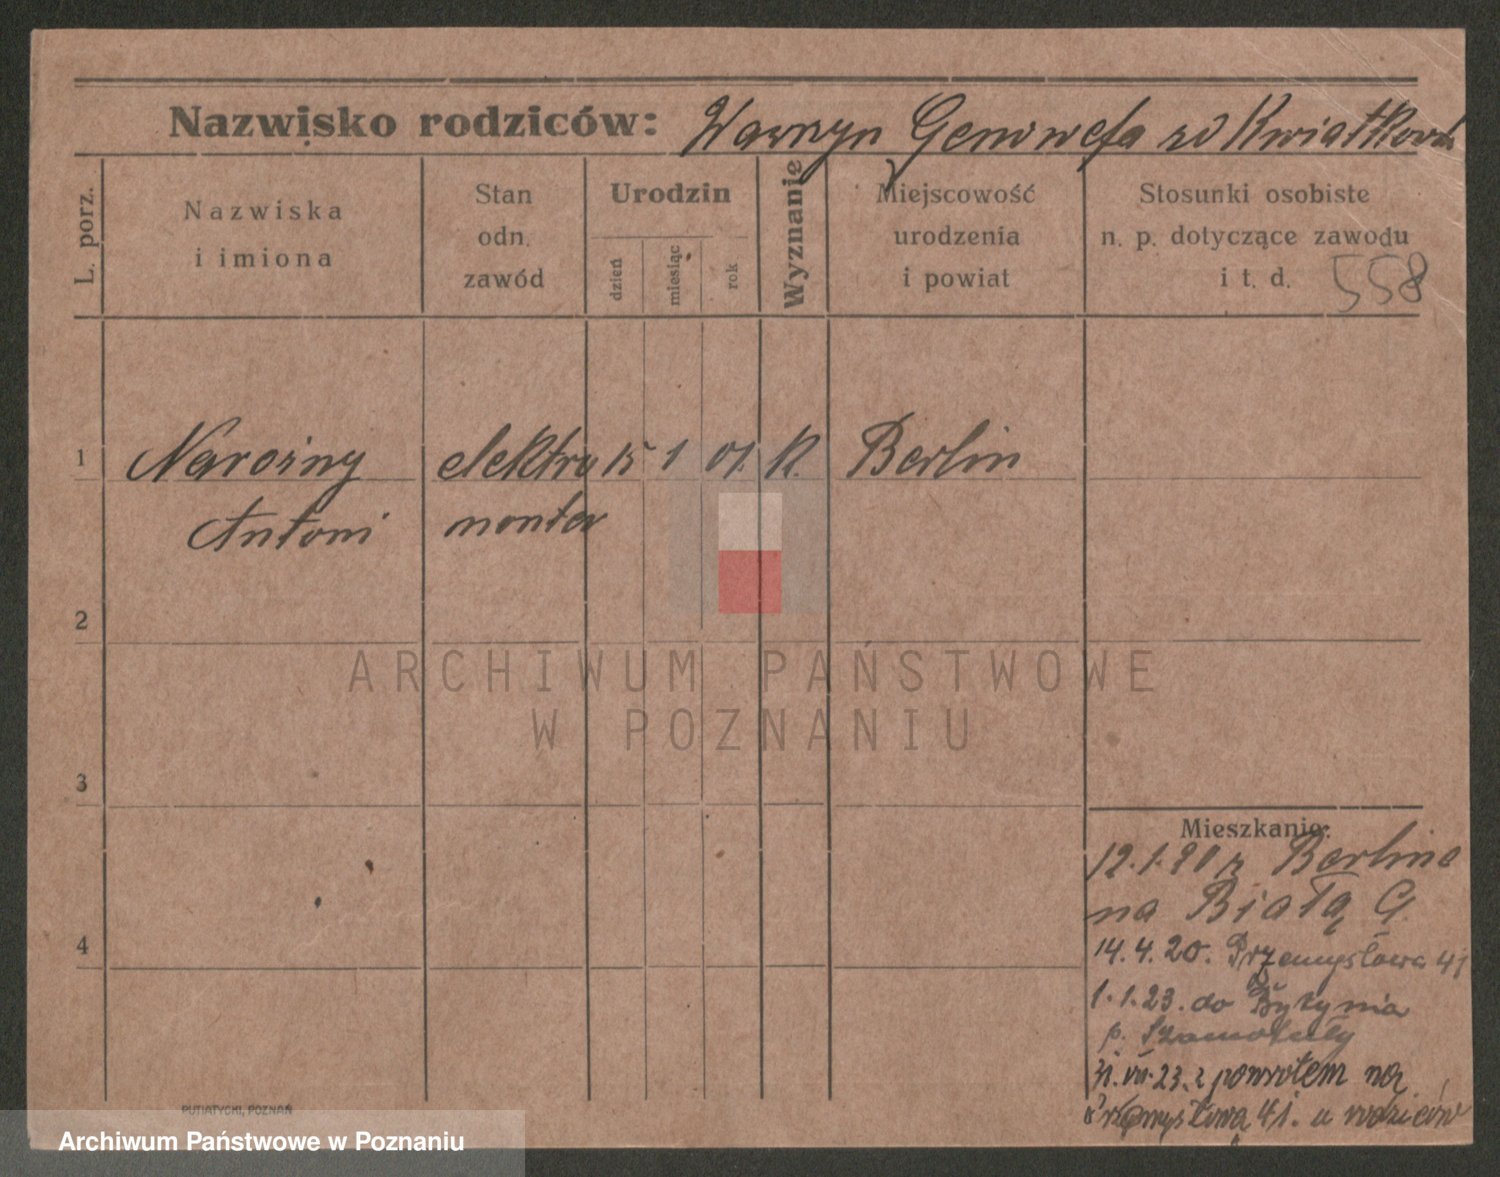 Nazwisko rodziców: Wawrzyn Genowefa zd Kwiatkowska
L. porz.
Nazwiska
i imiona
Stan
odn.
zawód
Urodzin
dzień
miesiąc
rok
Wyznanie
Miejscowość
urodzenia
i powiat
Stosunki osobiste
n. p. dotyczące zawodu
i t. d. 558
1 Narożny elektro 15 1 01. K. Berlin
Antoni monter
2
ARCHIWUM PAŃSTWOWE
W POZNANIU
3
Mieszkanie:
12.1.20 z Berlina
na Białą G.
4
14.4.20. Przemysłowa 41
1.1.23. do Bytynia
p. Szamotuły
31.VII.23. z powrotem na
Przemysłową 41. u rodziców
PUTIATYCKI, POZNAŃ
Archiwum Państwowe w Poznaniu